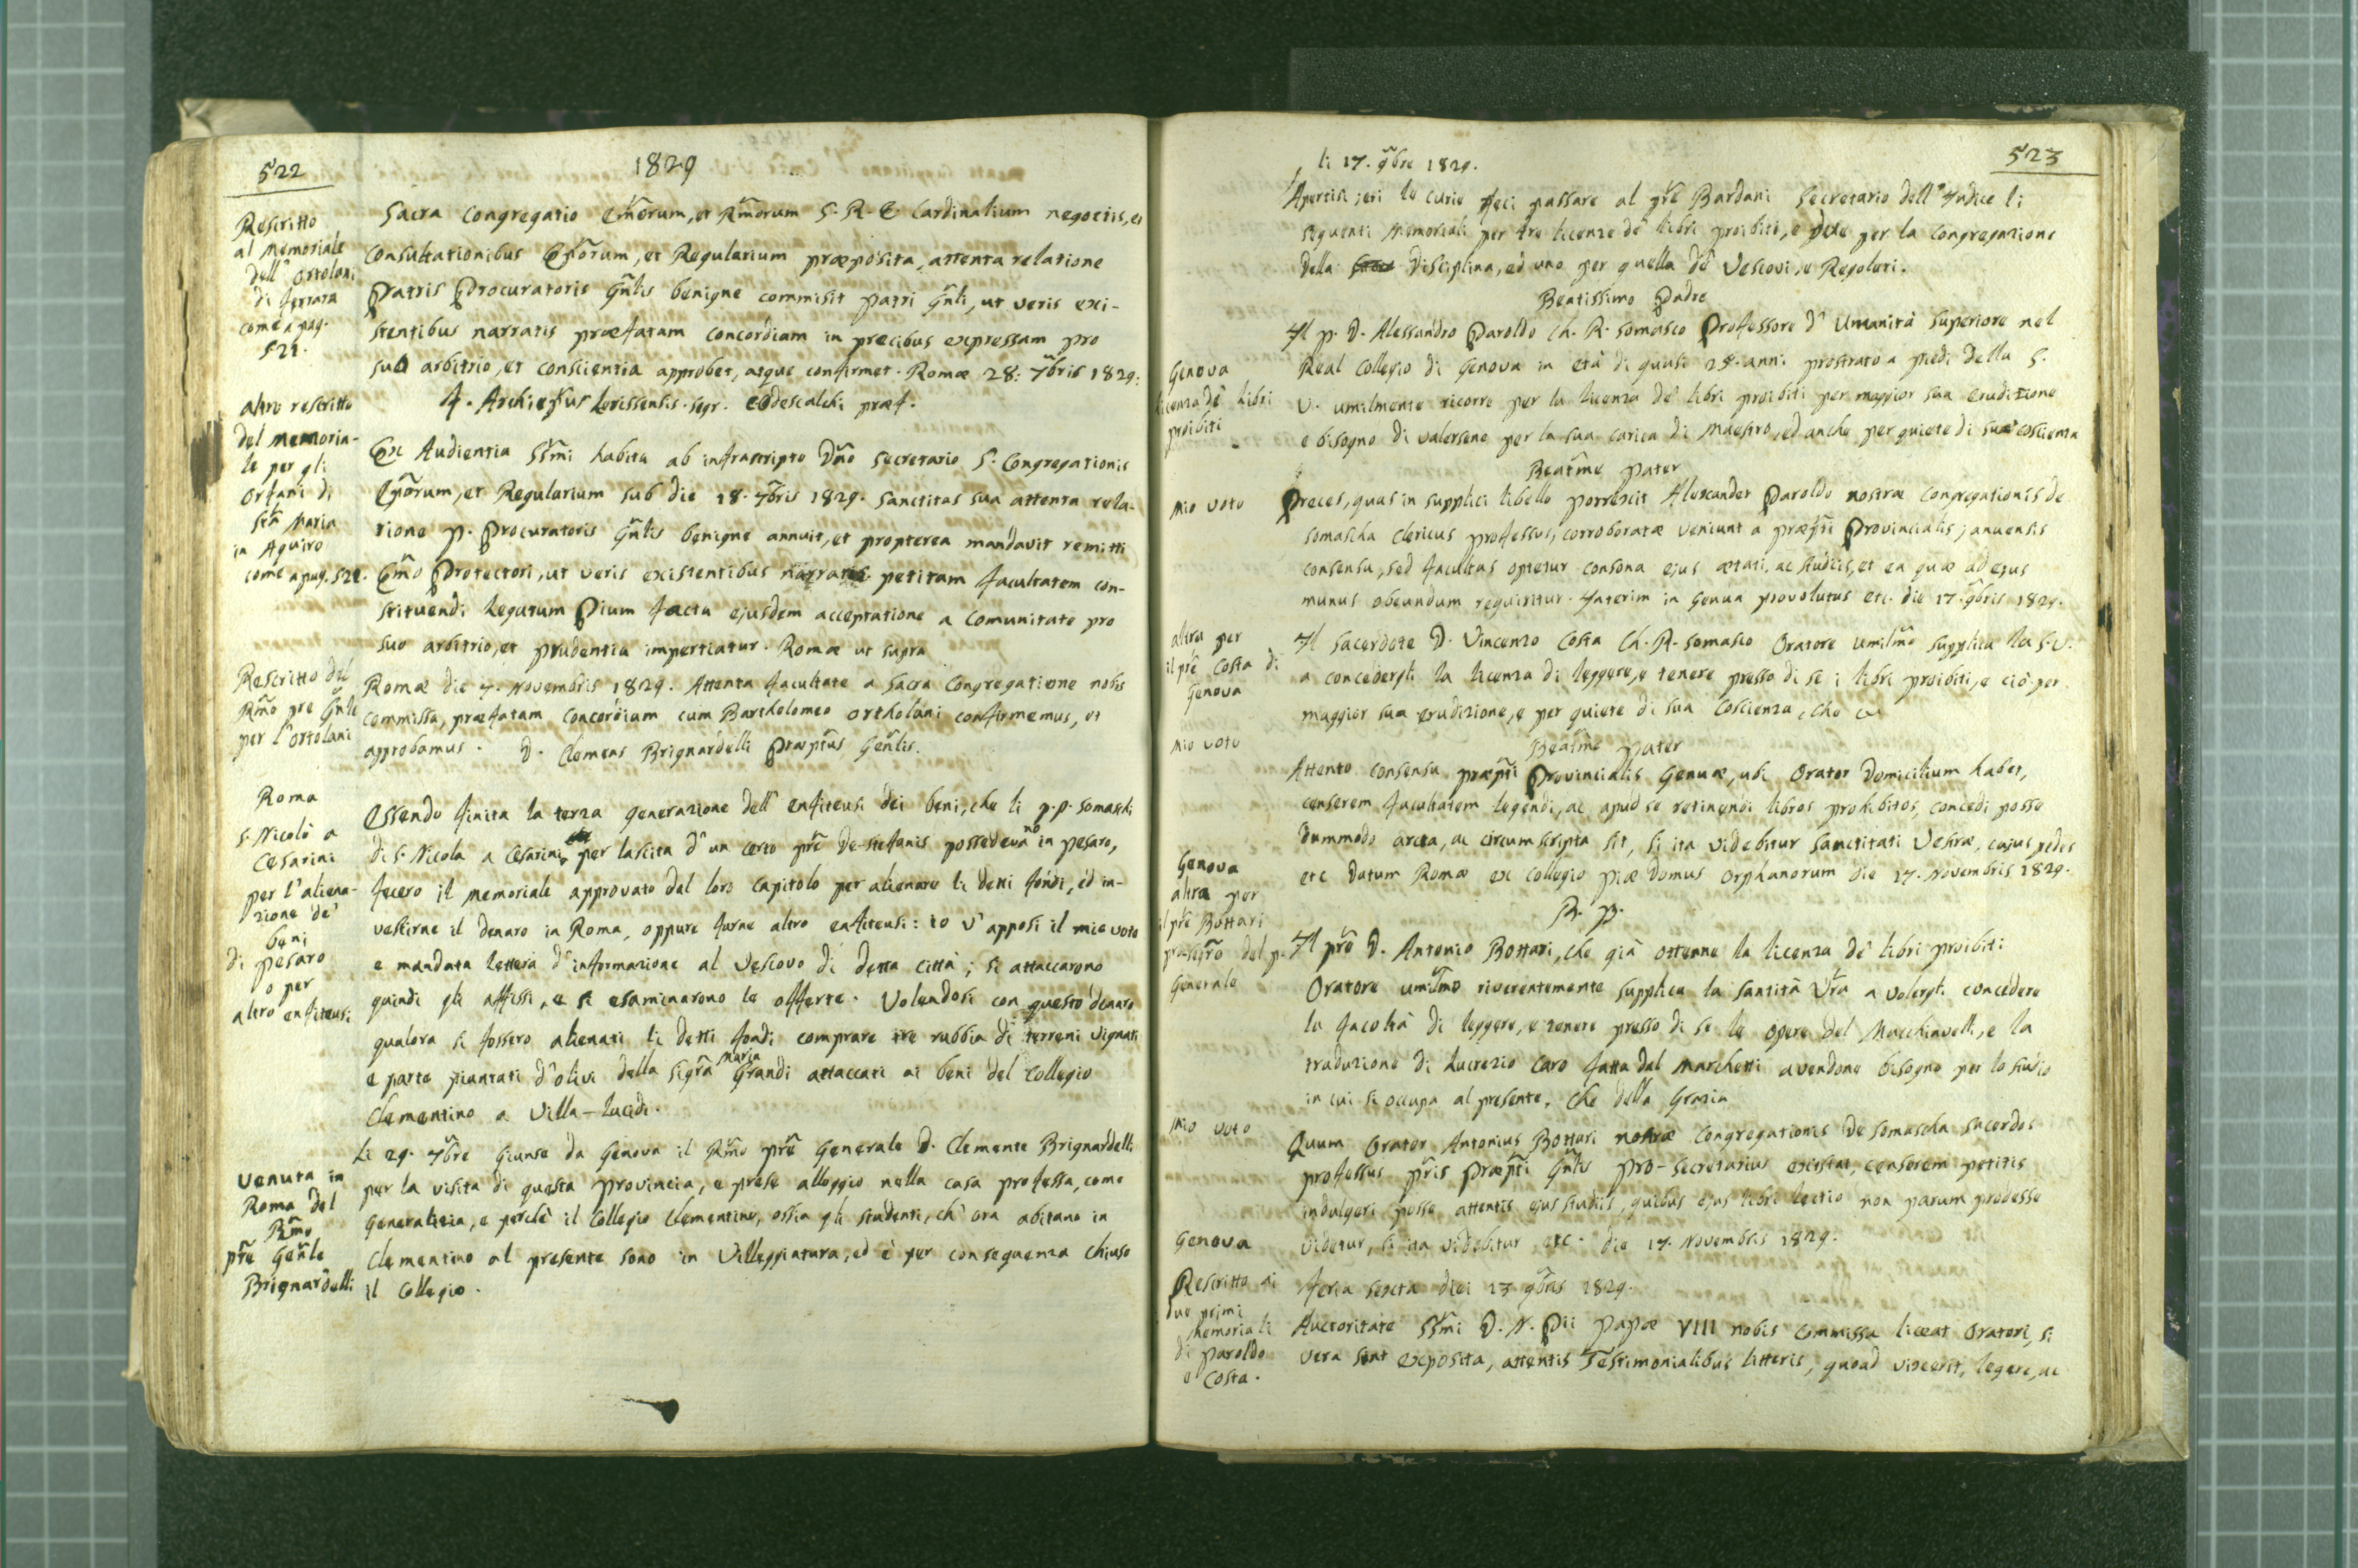 522
1829
Rescritto
al Memoriale
dell' Ortolani
di Ferrara
come a pag.
521.
Sacra Congregatio Emorum, et Rmorum S. R. E Cardinalium negotiis, et
Consultationibus Eporum, et Regularium præposita, attenta relatione
Patris Procuratoris Gnlis benigne commisit Patri Gnli, ut veris exi-
stentibus narratis præfatam concordiam in precibus expressam pro
suo arbitrio, et conscientia approbet, atque confirmet. Romæ 28: 7bris 1829:
Archiepus segr. Odescalchi præf.
altro rescritto
del memoria-
le per gli
Orfani di
Sta Maria
in Aquiro
come a pag. 521.
Ex Audientia SSmi habita ab infrascripto Dno Secretario S. Congregationis
Eporum, et Regularium sub die 18. 7bris 1829. Sanctitas sua attenta rela-
tione P. Procuratoris Gnlis benigne annuit, et propterea mandavit remitti
Emo Protectori, ut veris existentibus narratis petitam facultatem con-
stituendi Legatum Pium facta ejusdem acceptatione a Comunitate pro
suo arbitrio, et prudentia impertiatur. Romæ ut supra
Rescritto del
Rmo pre Gnle
per l'Ortolani
Romæ die 4. Novembris 1829. Attenta facultate a Sacra Congregatione nobis
commissa, præfatam Concordiam cum Bartholomeo Ortholani confirmemus, et
approbamus. D. Clemens Brignardelli Præptus Genlis.
Roma
S. Nicolò a
Cesarini
per l'aliena-
zione de'
beni
di Pesaro
o per
altro enfiteusi
Essendo finita la terza generazione dell' enfiteusi dei beni, che li p.p. Somaschi
di S. Nicola a Cesarini per lascita d' un certo pre De-Stefanis possedevano in Pesaro,
fecero il memoriale approvato dal loro Capitolo per alienare li detti fondi, ed in-
vestirne il denaro in Roma, oppure farne altro enfiteusi: io v' apposi il mio voto
e mandata lettera d' informazione al Vescovo di detta città; si attaccarono
quindi gli affissi, e si esaminarono le offerte. Volendosi con questo denaro
qualora si fossero alienati li detti fondi comprare tre rubbia di terreni vignati
e parte piantati d' olivi della Sigra Maria Grandi attaccati ai beni del Collegio
Clementino a Villa-Lucidi.
Venuta in
Roma del
Rmo
pre Genle
Brignardelli
Li 29. 7bre Giunse da Genova il Rmo pre Generale D. Clemente Brignardelli
per la visita di questa Provincia, e prese alloggio nella casa professa, come
Generalizia, e perchè il Collegio Clementino, ossia gli studenti, ch' ora abitano in
Clementino al presente sono in Villeggiatura, ed è per conseguenza chiuso
il Collegio.
523
li 17. 9bre 1829.
Apertisi jeri le curie feci passare al pre Bardani Secretario dell' Indice li
seguenti Memoriali per tre licenze de' libri proibiti, e due per la Congregazione
della Disciplina, ed uno per quella de' Vescovi, e Regolari.
Beatissimo Padre
Genova
licenza de' libri
proibiti
Il p. D. Alessandro Paroldo Ch. R. Somasco Professore d' Umanità Superiore nel
Real Collegio di Genova in età di quasi 25. anni prostrato a piedi della S.
V. umilmente ricorre per la licenza de' libri proibiti per maggior sua erudizione
e bisogno di valersene per la sua carica di Maestro, ed anche per quiete di sua coscienza
Beatme Pater
Mio voto
Preces, quas in supplici libello porrexit Alexander Paroldo nostræ Congregationis de
Somascha Clericus professus, corroboratæ veniunt a præpti Provincialis januensis
consensu, sed facultas optetur consona ejus ætati, ac studiis, et ea quæ ad ejus
munus obeundum requiritur. Interim in Genua provolutus etc. die 17. 9bris 1829.
altra per
il pre Costa di
Genova
Il Sacerdote D. Vincenzo Costa Ch. R. Somasco Oratore umilmo supplica la S. V.
a concedergli la licenza di leggere, e tenere presso di se i libri proibiti, e ciò per
maggior sua erudizione, e per quiete di sua Coscienza, che
Mio voto
Beatme Pater
Attento consensu præpti Provincialis Genuæ, ubi Orator domicilium habet,
censerem facultatem legendi, ac apud se retinendi libros prohibitos, concedi posse
dummodo arcta, ac circumscripta sit, si ita videbitur Sanctitati Vestræ, cujus pedes
etc Datum Romæ ex Collegio piæ Domus Orphanorum die 17. Novembris 1829.
B. P.
Genova
altra per
il pre Bottari
prosegro del p.
Generale
Il pre D. Antonio Bottari, che già ottenne la licenza de' libri proibiti
Oratore umilmo riverentemente supplica la Santità Vra a volergli concedere
la facoltà di leggere, e tenere presso di se le opere del Macchiavelli, e la
traduzione di Lucrezio Caro fatta dal Marchetti avendone bisogno per lo studio
in cui si occupa al presente. Che della Grazia
Mio voto
Quum Orator Antonius Bottari nostræ Congregationis de Somascha sacerdos
professus pris Præpti Gnlis pro-Secretarius existat, censerem petitis
indulgeri posse attentis ejus studiis, quibus ejus libri lectio non parum prodesse
videtur, si ita videbitur etc. die 17. Novembris 1829.
Genova
Rescritto ai
due primi
Memoriali
di Paroldo
e Costa.
Feria sexta diei 13 9bris 1829.
Auctoritate SSmi D. N. Pii Papæ VIII nobis commissa liceat Oratori, si
vera sunt exposita, attentis Testimonialibus litteris, quoad vixerit, legere, ac